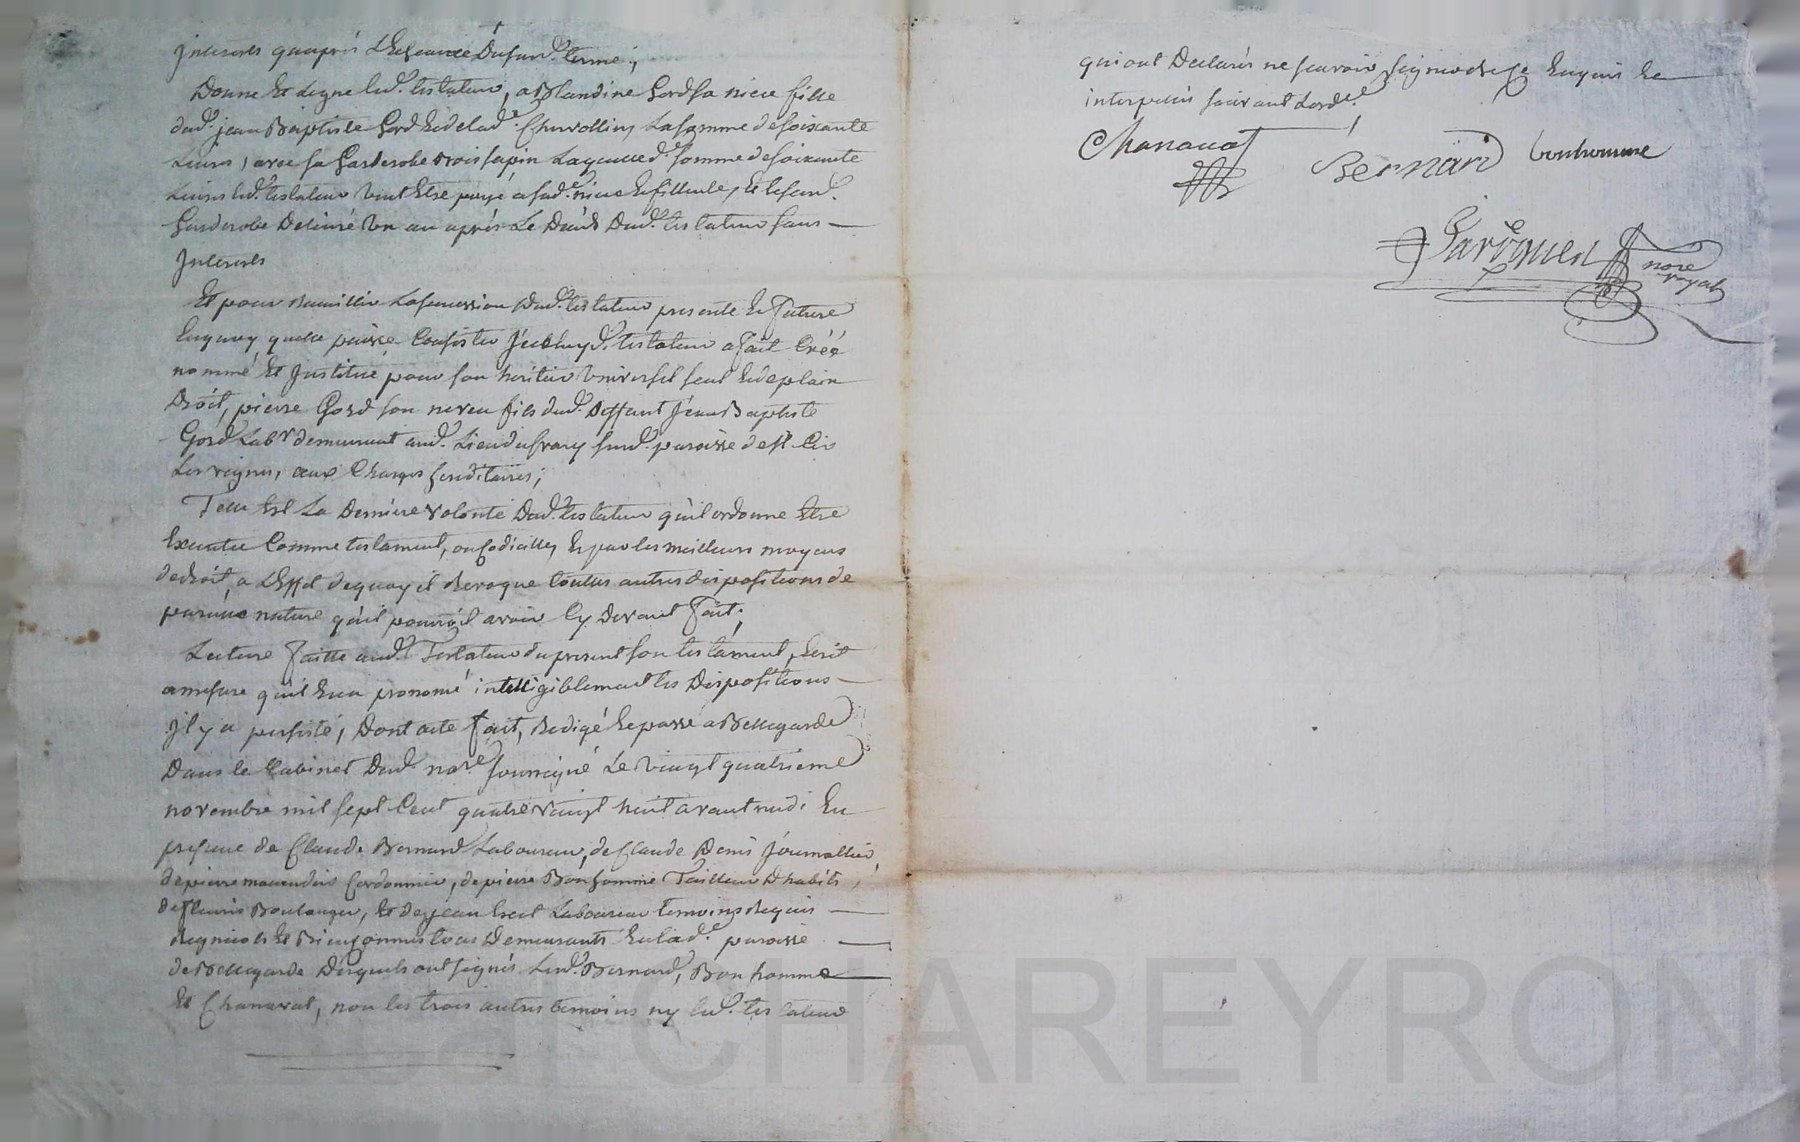 Interests qu'après L'Echeance Dususd. terme;
Donne Et Legue led. testateur, a Blandine Gord sa niece fille
dud. jean Baptiste Gord Et de lad.e Chevrollier, La somme de soixante
Livres, avec sa Garderobe bois sapin Laquelle d. somme de soixante
Livres led. testateur Veut Etre payé a sad.e niece Et filleule, Et lesusd.
Garderobe Delivré Un an après Le Décès Dud. testateur sans
Interests
Et pour Recuillir La sucession Dud. testateur presente Et future
En quoy quelle puisse Consister Icelluy d. testateur a fait Créé
nommé Et Institué pour son heritier Universel seul Et de plain
Droit, pierre Gord son neveu fils dud. Deffunt Jean Baptiste
Gord Lab.r demeurant aud. Lieu du susd. paroisse de st Cir
Les vignes, aux Charges hereditaires;
Telle Est La Derniere volonté Dud. testateur qu'il ordonne Etre
Executée Comme testament, ou Codicille, Et par les meilleurs moyens
de droit, a L'Effet de quoy il Revoque toutes autres dispositions de
pareille nature qu'il pourroit avoir Cy Devant fait;
Lecture faitte aud. Testateur du present son testament, Ecrit
a mesure qu'il En a prononcé intelligiblement les Dispositions
Il y a persisté, Dont acte fait, Redigé Et passé a Bellegarde
Dans le Cabinet Dud. not.re soussigné Le vingt quatrieme
novembre mil sept Cent quatre vingt huit avant midi En
presence de Claude Bernard Laboureur, de Claude Denis Journallier,
de pierre Cordonnier, de pierre Bonhomme Tailleur D'habits,
de Boulanger, Et de jean Laboureur temoins Requis
Et Bien Connus tous Demeurants En lad.e paroisse
de Bellegarde Desquels ont signés Lesd. Bernard, Bonhomme
Et Chanavat, non les trois autres temoins ny led. testateur
qui ont Declarés ne sçavoir signer de ce Enquis Et
interpellés suivant L'ord.ce
Chanavat
Bernard
bonhomme
not.re
royal
CHAREYRON